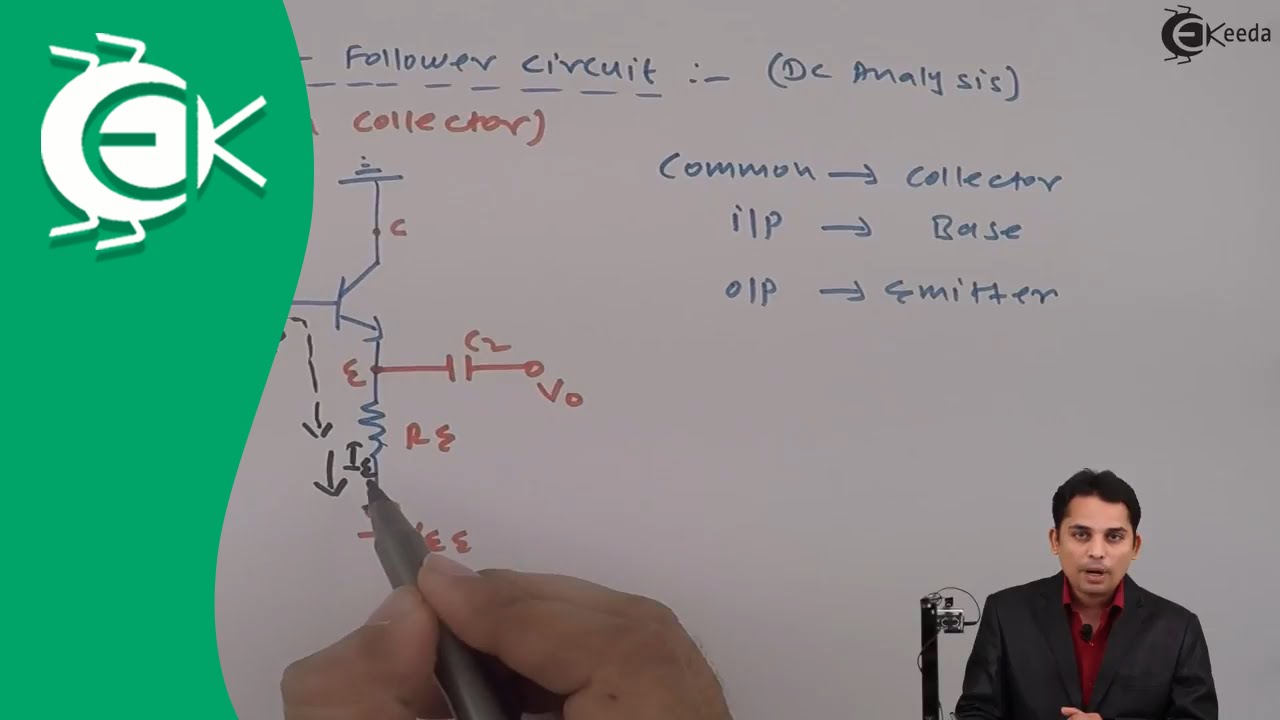 EK
EKeeda
- Follower circuit :- (DC Analysis)
collector)
Common → collector
i/p → Base
o/p → Emitter
C
C2
E
Vo
RE
IE
EE